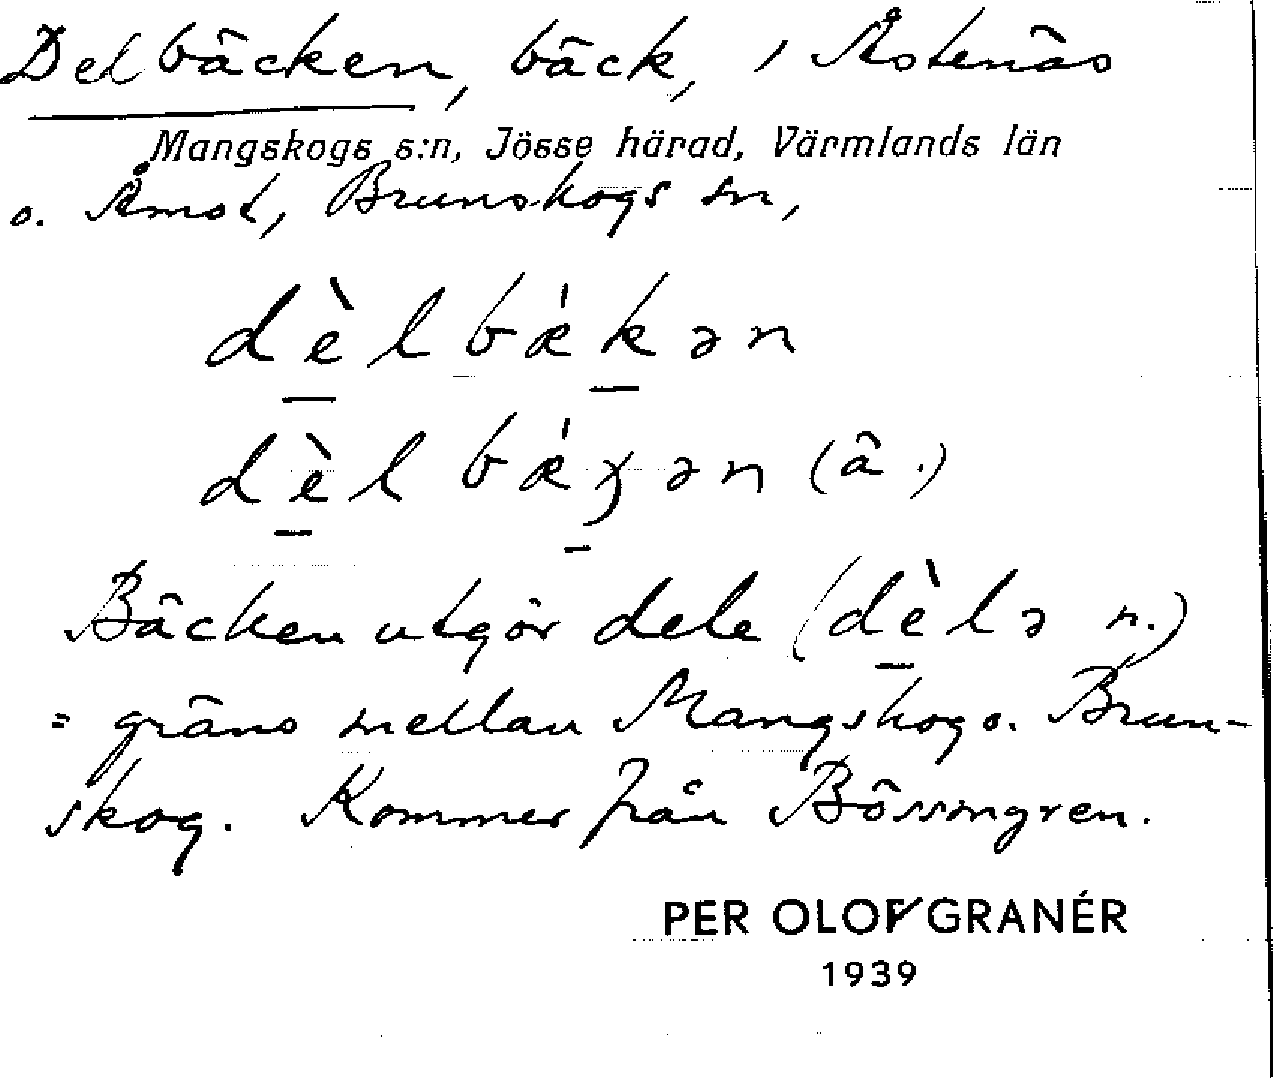 Delbäcken, bäck, i Åstenäs
Mangskogs s:n, Jösse härad, Värmlands län
o. Åmot, Brunskogs sn,
dèlbǽkən
dèlbǽɣən (ä.)
Bäcken utgör dele (dèlə n.)
= gräns mellan Mangskog o. Brun-
skog. Kommer från
PER OLOF GRANÉR
1939